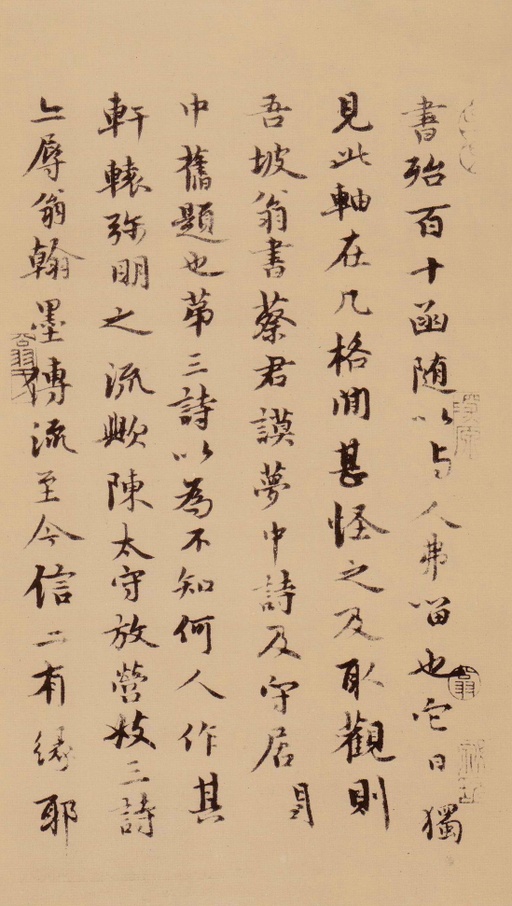 書殆百十函随以与人弗留也它日獨
見此軸在几格間甚怪之及取觀則
吾坡翁書蔡君謨夢中詩及守居閣
中舊題也第三詩以為不知何人作其
軒轅弥明之流歟陳太守放營妓三詩
亦辱翁翰墨傳流至今信亦有緣耶